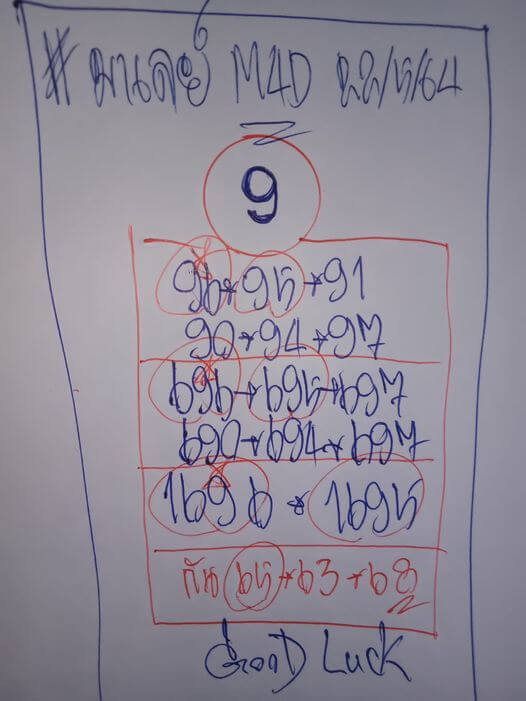 # มาเลย์ M4D 22/5/64
9
96*95*91
90*94*97
696*695*697
690*694*697
1696*1695
กัน 65*63*68
GooD Luck